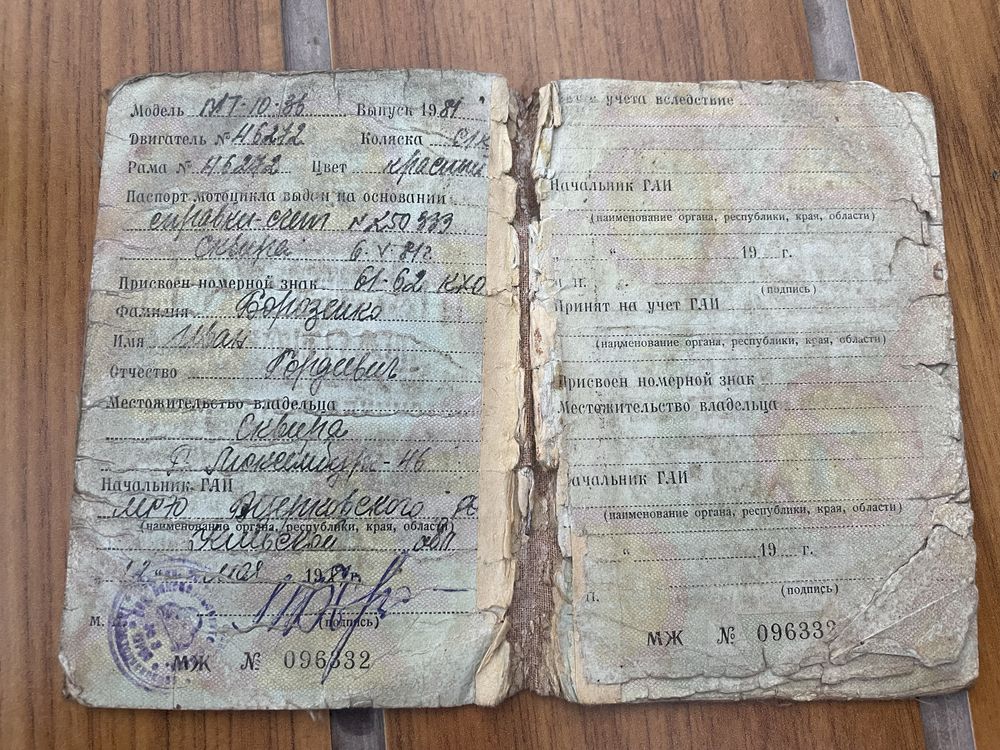 Модель МТ-10-36 Выпуск 1981
Двигатель № 46272 Коляска
Рама № 46272 Цвет красный
Паспорт мотоцикла выдан на основании
справки-счет № 250933
Сквира 6.V.81г.
Присвоен номерной знак 61-62 кхо
Фамилия Борозенко
Имя Иван
Отчество Гордеевич
Местожительство владельца
Сквира
46
Начальник ГАИ
МРЭО
(наименование органа, республики, края, области)
обл
12 " мая 1981г.
М. (подпись)
МЖ № 096332
учета вследствие
Начальник ГАИ
(наименование органа, республики, края, области)
" 19 г.
П. (подпись)
Принят на учет ГАИ
(наименование органа, республики, края, области)
Присвоен номерной знак
Местожительство владельца
Начальник ГАИ
(наименование органа, республики, края, области)
" 19 г.
П. (подпись)
МЖ № 096332